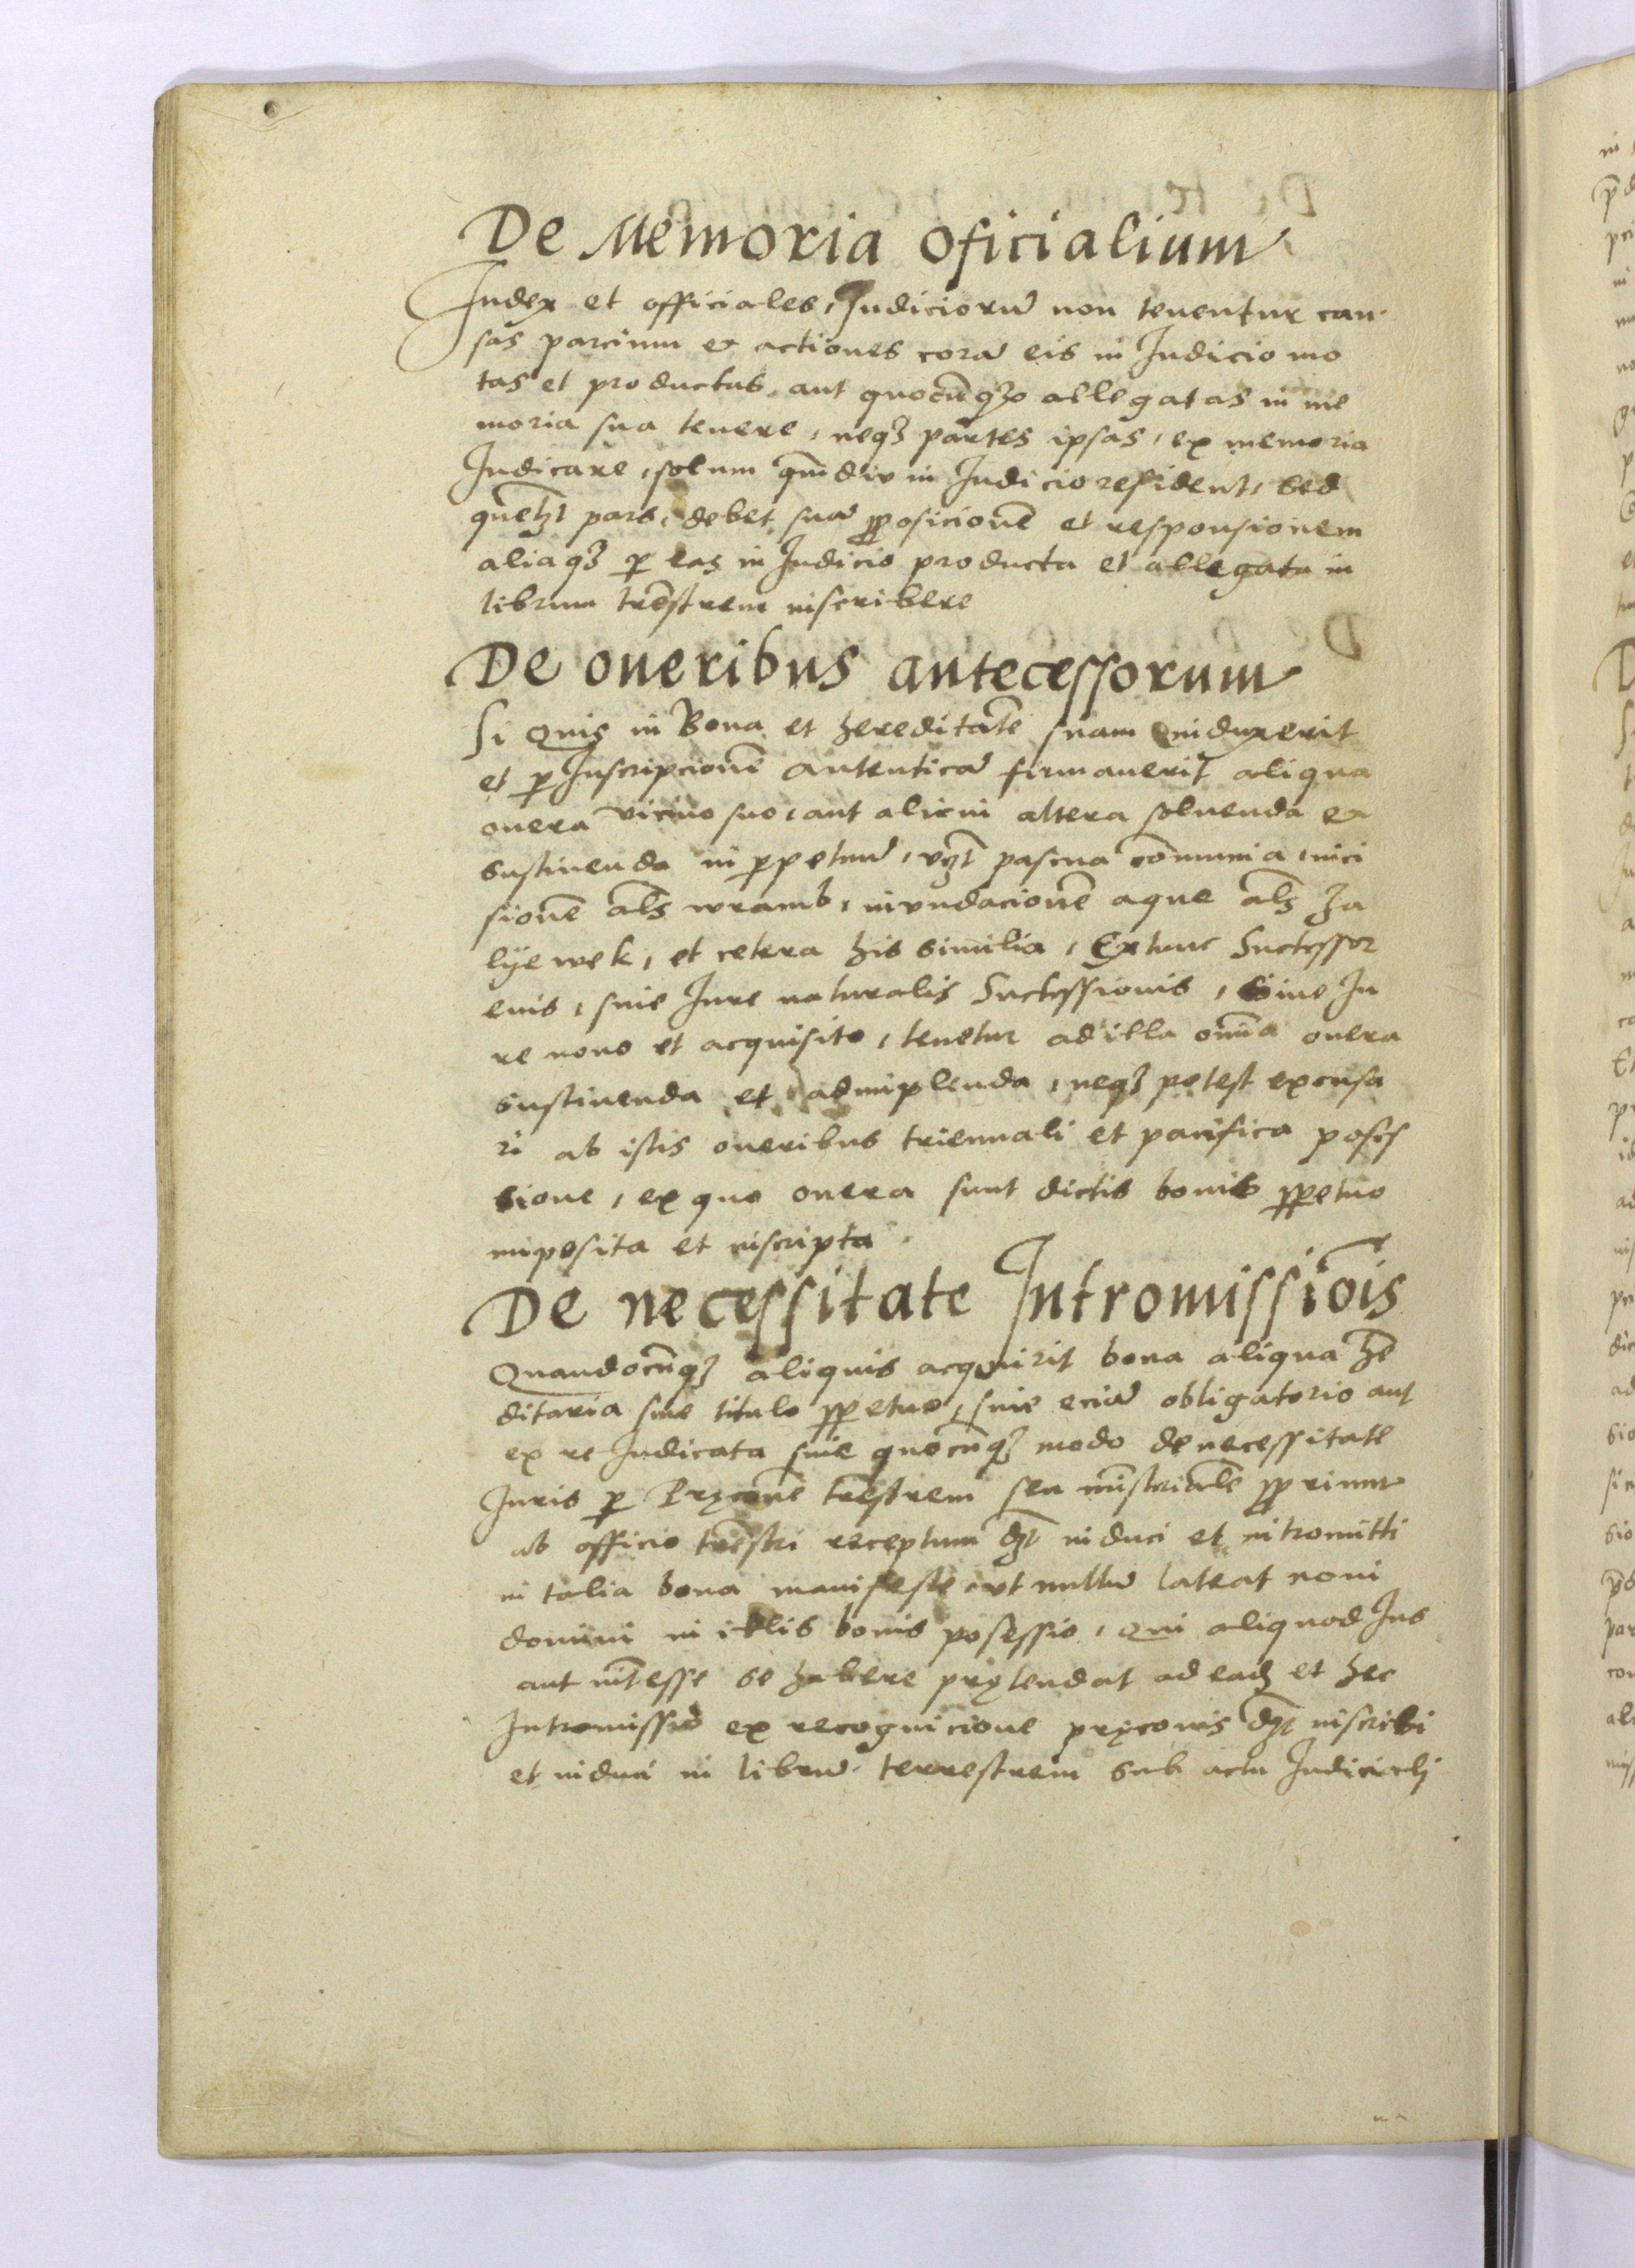 De Memoria oficialium
Iudex et officiales, Iudiciorū non tenentur cau-
sas parcium et actiones corā eis in Iudicio mo
tas et productas, aut quocūqȝ allegatas in me
moria sua tenere, neqȝ partes ipsas, ex memoria
Iudicare, solum qm̄diu in Iudicio resident, sed
quel̄ȝt pars, debet suā ꝓposicionē et responsionem
aliaqȝ ꝑ eas in Iudicio producta et allegata in
librum trēstrem inscribere
De oneribus antecessorum
Si Quis in Bona et hereditatē suam induxerit
et ꝑ Inscripcionē autenticā firmauerit aliqua
onera vicino suo, aut alicui altera soluenda et
sustinenda in ꝑpetuū, vꝫt pascua cōmunia, inci
sionē als̄ wramb, inundacionē aque als̄ za
lyewek, et cetera his similia, Extunc Successor
euis, siue Iure naturalis Successionis, siue Iu
re nouo et acquisito, tenetur ad illa om̄ia onera
sustinenda et adimplenda, neqȝ potest excusa
ri ab istis oneribus triennali et pacifica poses
sione, ex quo onera sunt dictis bonis ꝑpetuo
imposita et inscripta
De necessitate Intromissiōis
Quandocūqȝ aliquis acquirit bona aliqua he
ditaria siue titulo ꝑpetuo, siue eciā obligatorio aut
ex re Iudicata siue quocūqȝ modo de necessitate
Iuris ꝑ Pręconē trēstrem seu mīsterialē ꝓprium
ab officio trēstri receptum dꝫt induci et intromitti
in talia bona manifeste, vt nullū lateat noui
domini in illis bonis posessio, Qui aliquod Ius
aut int̄esse se habere prętendat ad eadȝ et hec
Intromissio ex recognicione pręconis dꝫt inscribi
et induci in librū terrestrem sub actu Iudiciali